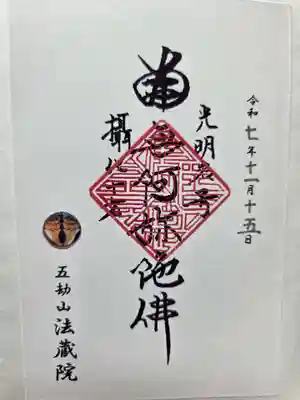 令和七年十一月十五日
光明名号
南無阿弥陀佛
摂八十五
五劫山法蔵院